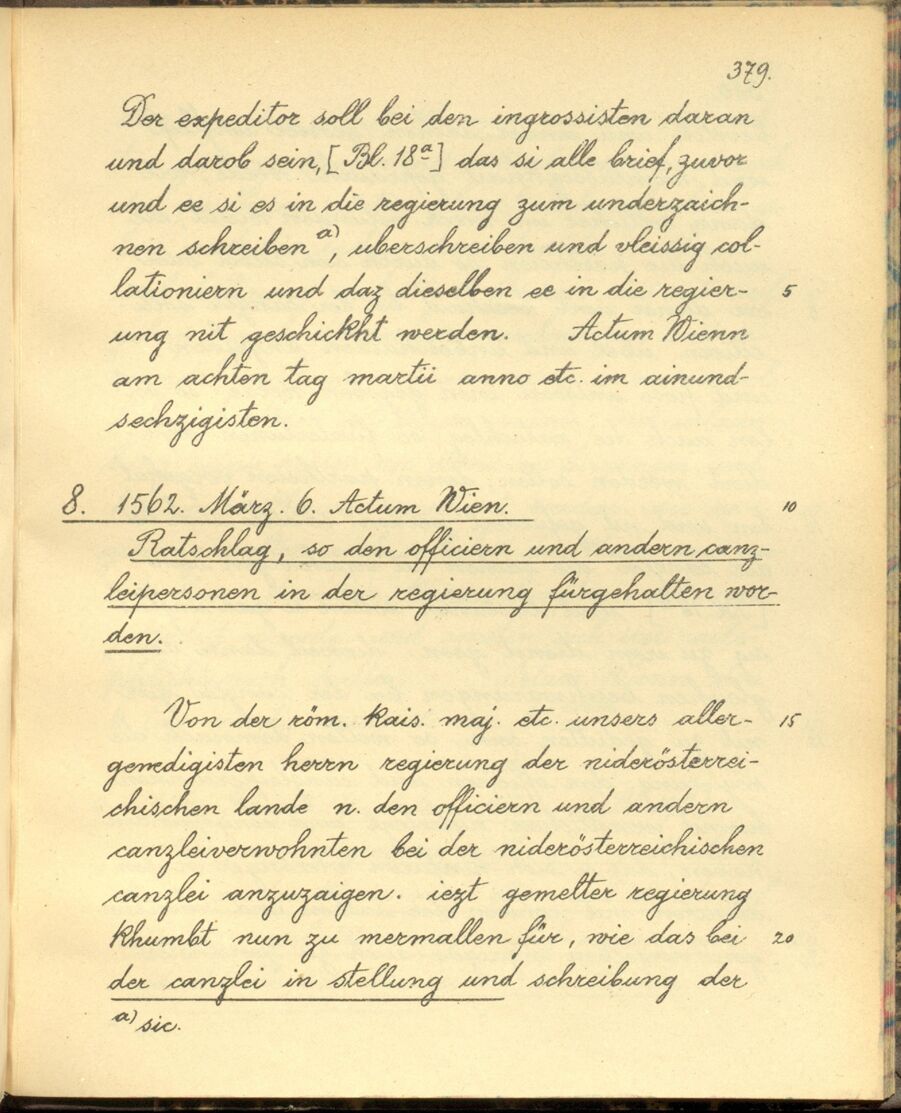 379.
Der expeditor soll bei den ingrossisten daran
und darob sein, [Bl. 18a] das si alle brief, zuvor
und ee si es in die regierung zum underzaich-
nen schreiben a), uberschreiben und vleissig col-
lationiern und daz dieselben ee in die regier- 5
ung nit geschickht werden. Actum Wienn
am achten tag martii anno etc. im ainund-
sechzigisten.
8. 1562. März. 6. Actum Wien. 10
Ratschlag, so den officiern und andern canz-
leipersonen in der regierung fürgehalten wor-
den.
Von der röm. kais. maj. etc. unsers aller- 15
genedigisten herrn regierung der niderösterrei-
chischen lande n. den officiern und andern
canzleiverwohnten bei der niderösterreichischen
canzlei anzuzaigen. iezt gemelter regierung
khumbt nun zu mermallen für, wie das bei 20
der canzlei in stellung und schreibung der
a) sic.